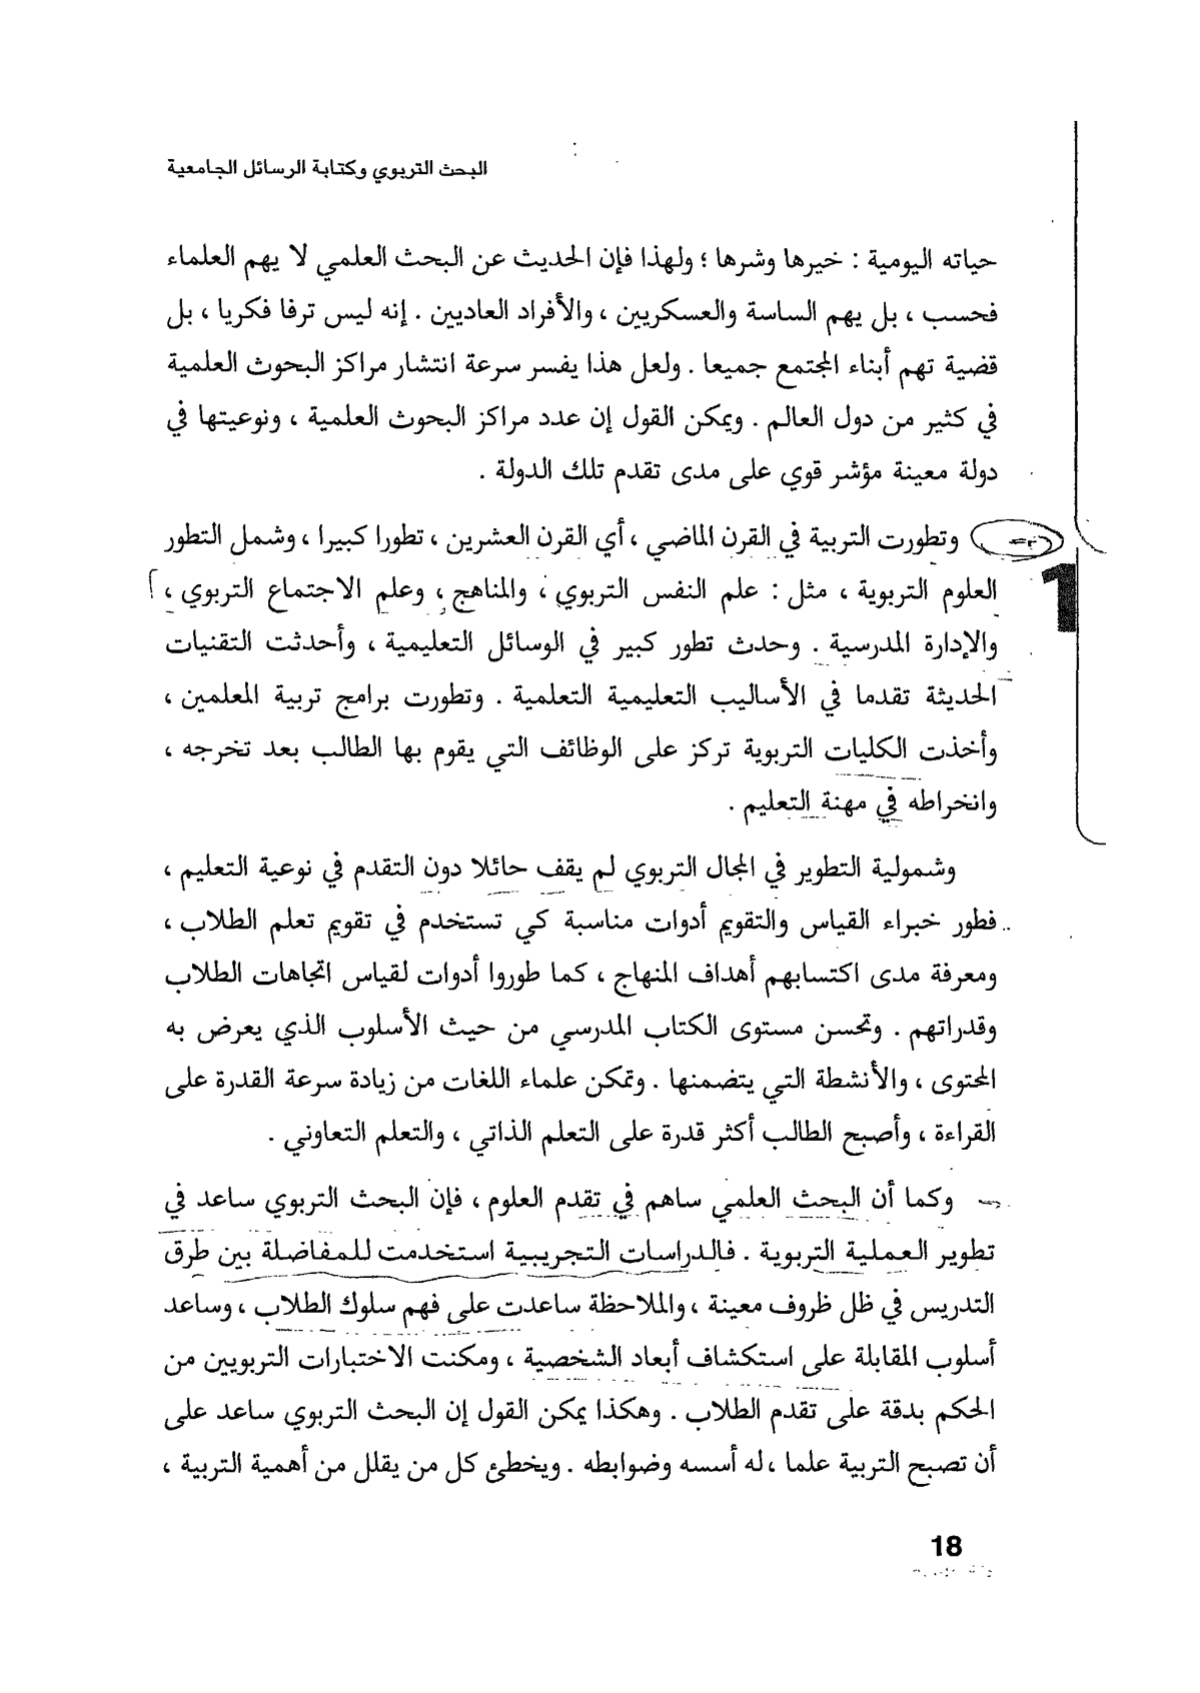 البحث التربوي وكتابة الرسائل الجامعية
حياته اليومية : خيرها وشرها ؛ ولهذا فإن الحديث عن البحث العلمي لا يهم العلماء
فحسب ، بل يهم الساسة والعسكريين ، والأفراد العاديين . إنه ليس ترفا فكريا ، بل
قضية تهم أبناء المجتمع جميعا . ولعل هذا يفسر سرعة انتشار مراكز البحوث العلمية
في كثير من دول العالم . ويمكن القول إن عدد مراكز البحوث العلمية ، ونوعيتها في
دولة معينة مؤشر قوي على مدى تقدم تلك الدولة .
وتطورت التربية في القرن الماضي ، أي القرن العشرين ، تطورا كبيرا ، وشمل التطور
1
العلوم التربوية ، مثل : علم النفس التربوي ، والمناهج ، وعلم الاجتماع التربوي ،
والإدارة المدرسية . وحدث تطور كبير في الوسائل التعليمية ، وأحدثت التقنيات
الحديثة تقدما في الأساليب التعليمية التعلمية . وتطورت برامج تربية المعلمين ،
وأخذت الكليات التربوية تركز على الوظائف التي يقوم بها الطالب بعد تخرجه ،
وانخراطه في مهنة التعليم .
وشمولية التطوير في المجال التربوي لم يقف حائلا دون التقدم في نوعية التعليم ،
فطور خبراء القياس والتقويم أدوات مناسبة كي تستخدم في تقويم تعلم الطلاب ،
ومعرفة مدى اكتسابهم أهداف المنهاج ، كما طوروا أدوات لقياس اتجاهات الطلاب
وقدراتهم . وتحسن مستوى الكتاب المدرسي من حيث الأسلوب الذي يعرض به
المحتوى ، والأنشطة التي يتضمنها . وتمكن علماء اللغات من زيادة سرعة القدرة على
القراءة ، وأصبح الطالب أكثر قدرة على التعلم الذاتي ، والتعلم التعاوني .
وكما أن البحث العلمي ساهم في تقدم العلوم ، فإن البحث التربوي ساعد في
تطوير العملية التربوية . فالدراسات التجريبية استخدمت للمفاضلة بين طرق
التدريس في ظل ظروف معينة ، والملاحظة ساعدت على فهم سلوك الطلاب ، وساعد
أسلوب المقابلة على استكشاف أبعاد الشخصية ، ومكنت الاختبارات التربويين من
الحكم بدقة على تقدم الطلاب . وهكذا يمكن القول إن البحث التربوي ساعد على
أن تصبح التربية علما ، له أسسه وضوابطه . ويخطئ كل من يقلل من أهمية التربية ،
18